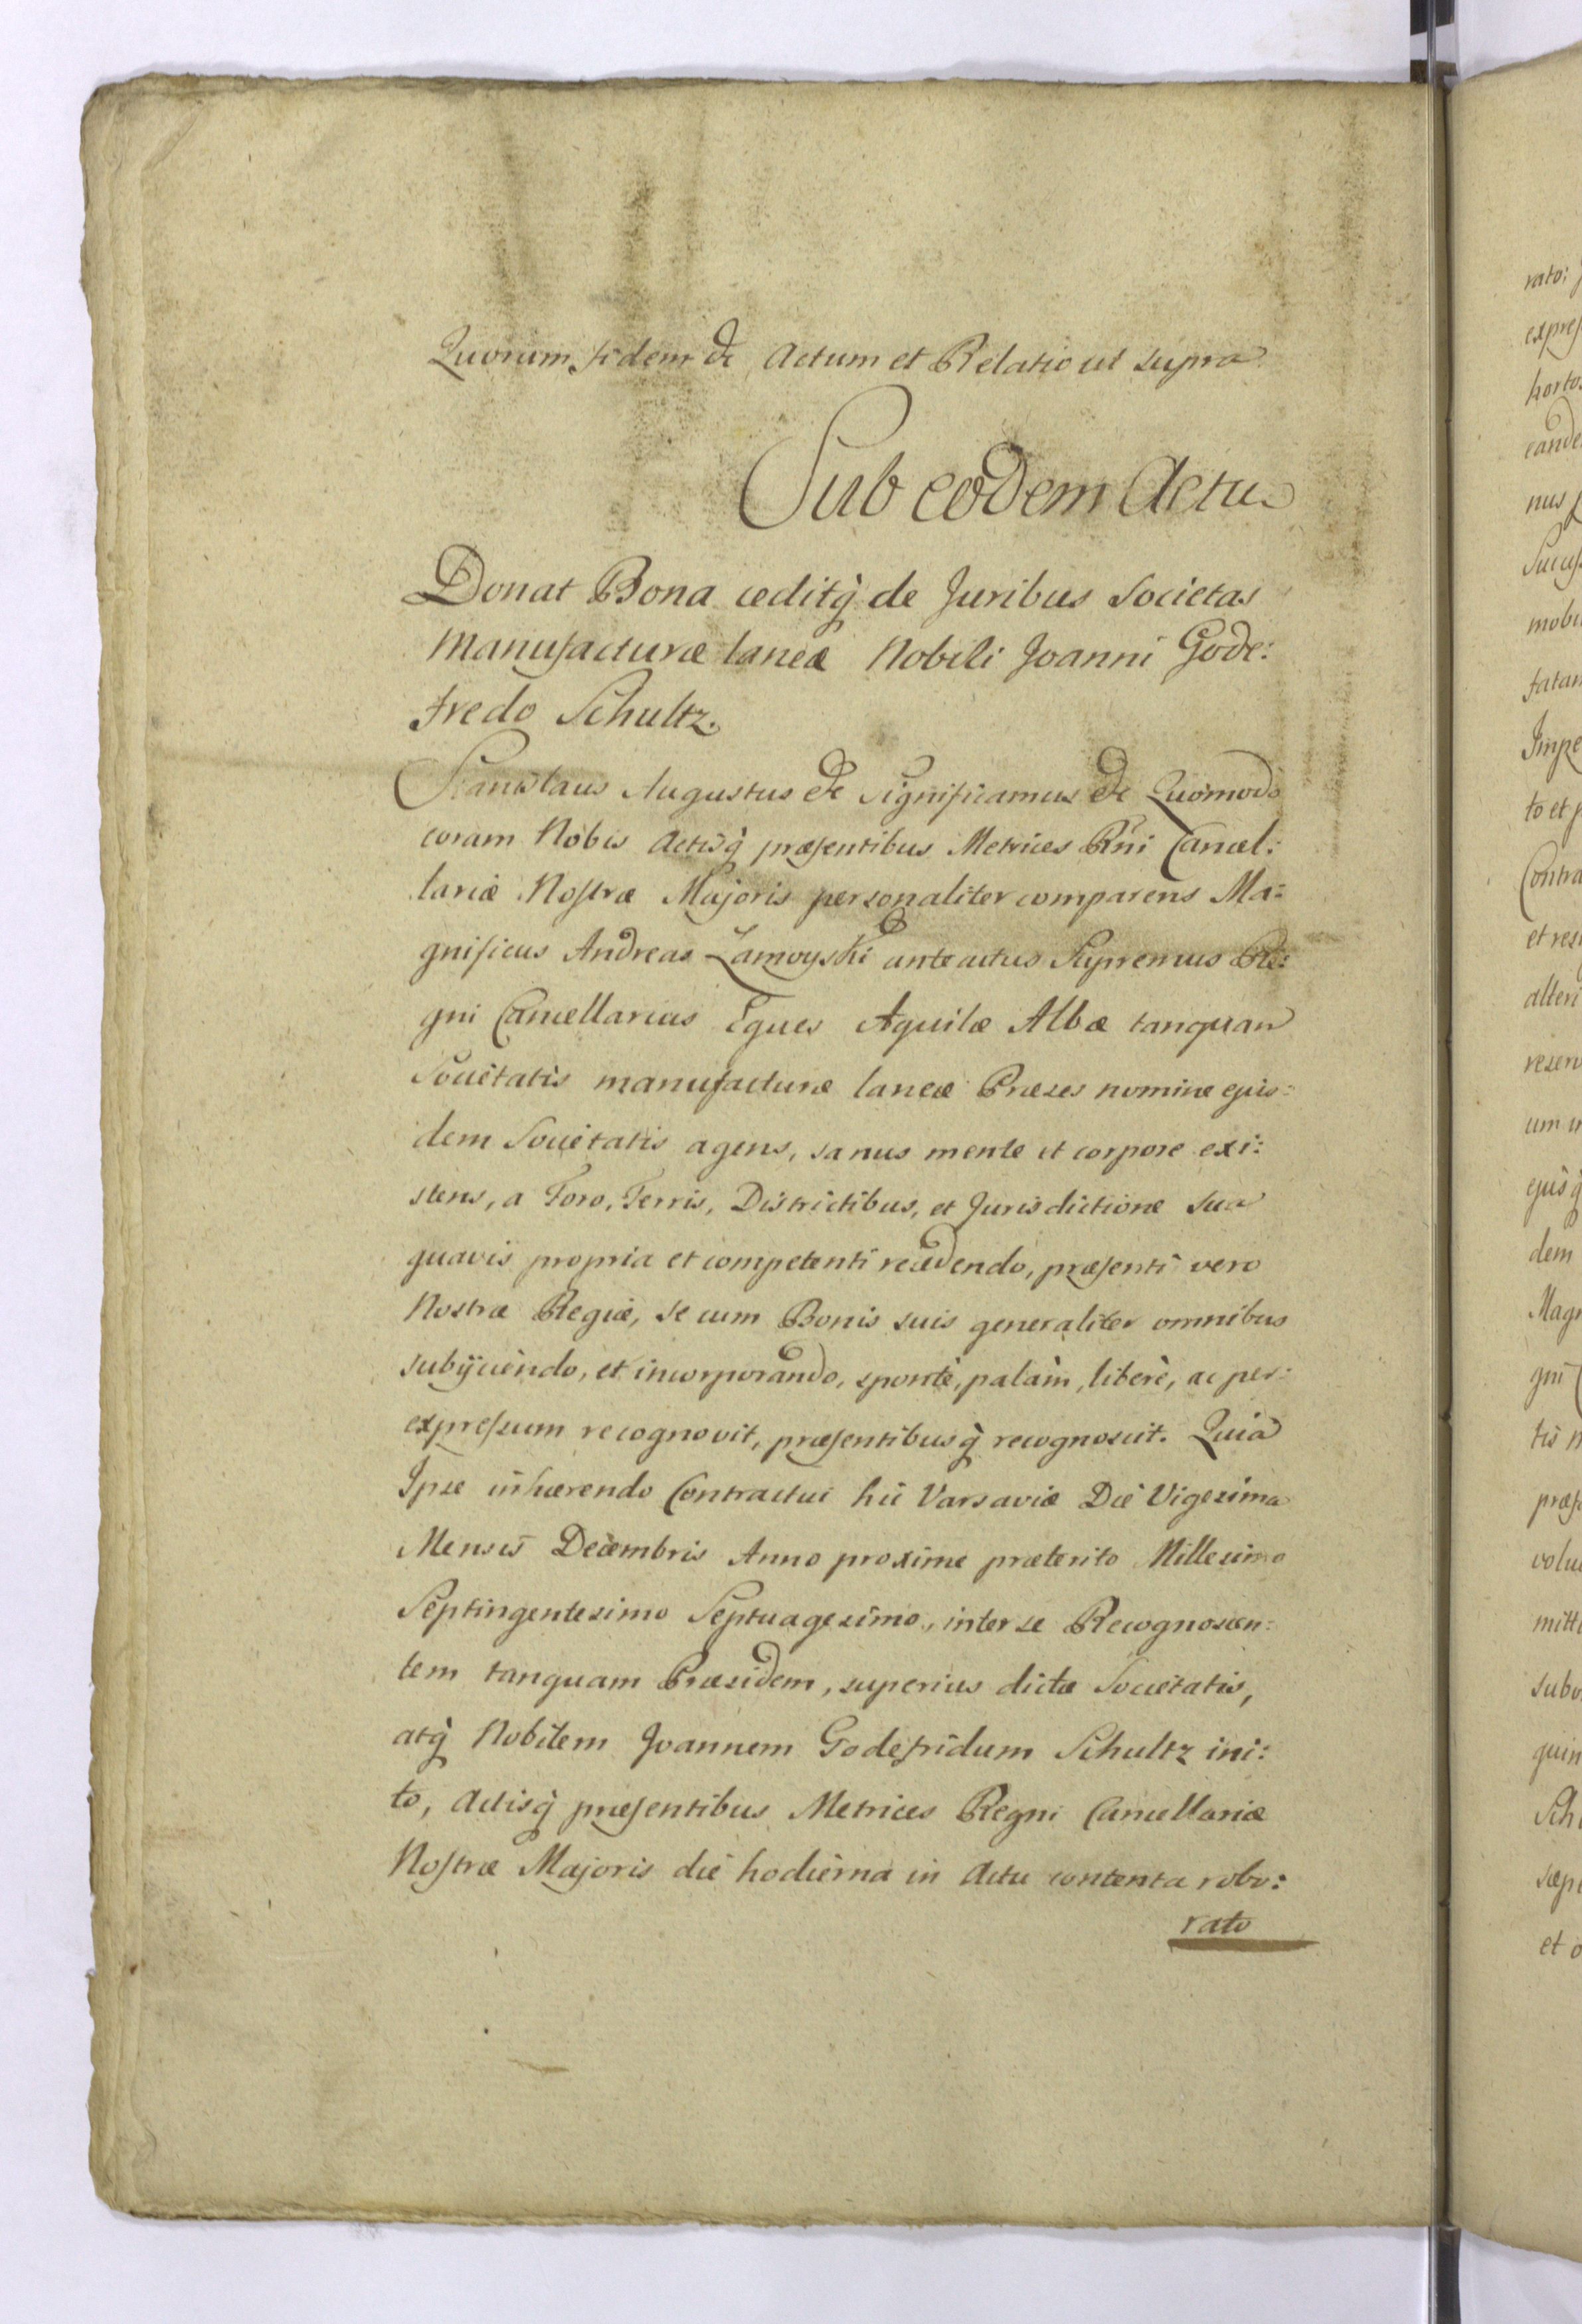 Quorum fidem &c Actum et Relatio ut supra
Sub eodem Actu
Donat Bona ceditq̀ de Juribus Societas
Manufacturæ laneæ Nobili Joanni Gode:
fredo Schultz.
Stanislaus Augustus &c Significamus &c Quomodo
coram Nobis Actisq̀ præsentibus Metrices Rni Cancel:
lariæ Nostræ Majoris personaliter comparens Ma:
gnificus Andreas Zamoyski anteactus Supremus Re:
gni Cancellarius Eques Aquilæ Albæ tanquam
Societatis manufacturæ laneæ Præses nomine ejus:
dem Societatis agens, sanus mente et corpore exi:
stens, a Foro, Terris, Districtibus, et Jurisdictione sua
quavis propria et competenti recedendo, præsenti vero
Nostræ Regiæ, se cum Bonis suis generaliter omnibus
subijciendo, et incorporando, spontè, palàm, liberè, ac per:
expressum recognovit, præsentibusq̀ recognoscit. Quia
Ipse inhærendo Contractui hic Varsaviæ Die Vigesima
Mensis Decembris Anno proxime præterito Millesimo
Septingentesimo Septuagesimo, inter se Recognoscen:
tem tanquam Præsidem, superius dictæ Societatis,
atq̀ Nobilem Joannem Godefridum Schultz ini:
to, Actisq̀ præsentibus Metrices Regni Cancellariæ
Nostræ Majoris die hodierna in Actu contenta robo:
rato
rato:
expres
horto
eande
nus
mobi
fatan
Impe
to et p
Contra
et res
alteri
reser
um in
ejusq̀
dem
Magn
gni C
tis m
præs
volu
mitt
subo
quin
Sch
sæpi
et o